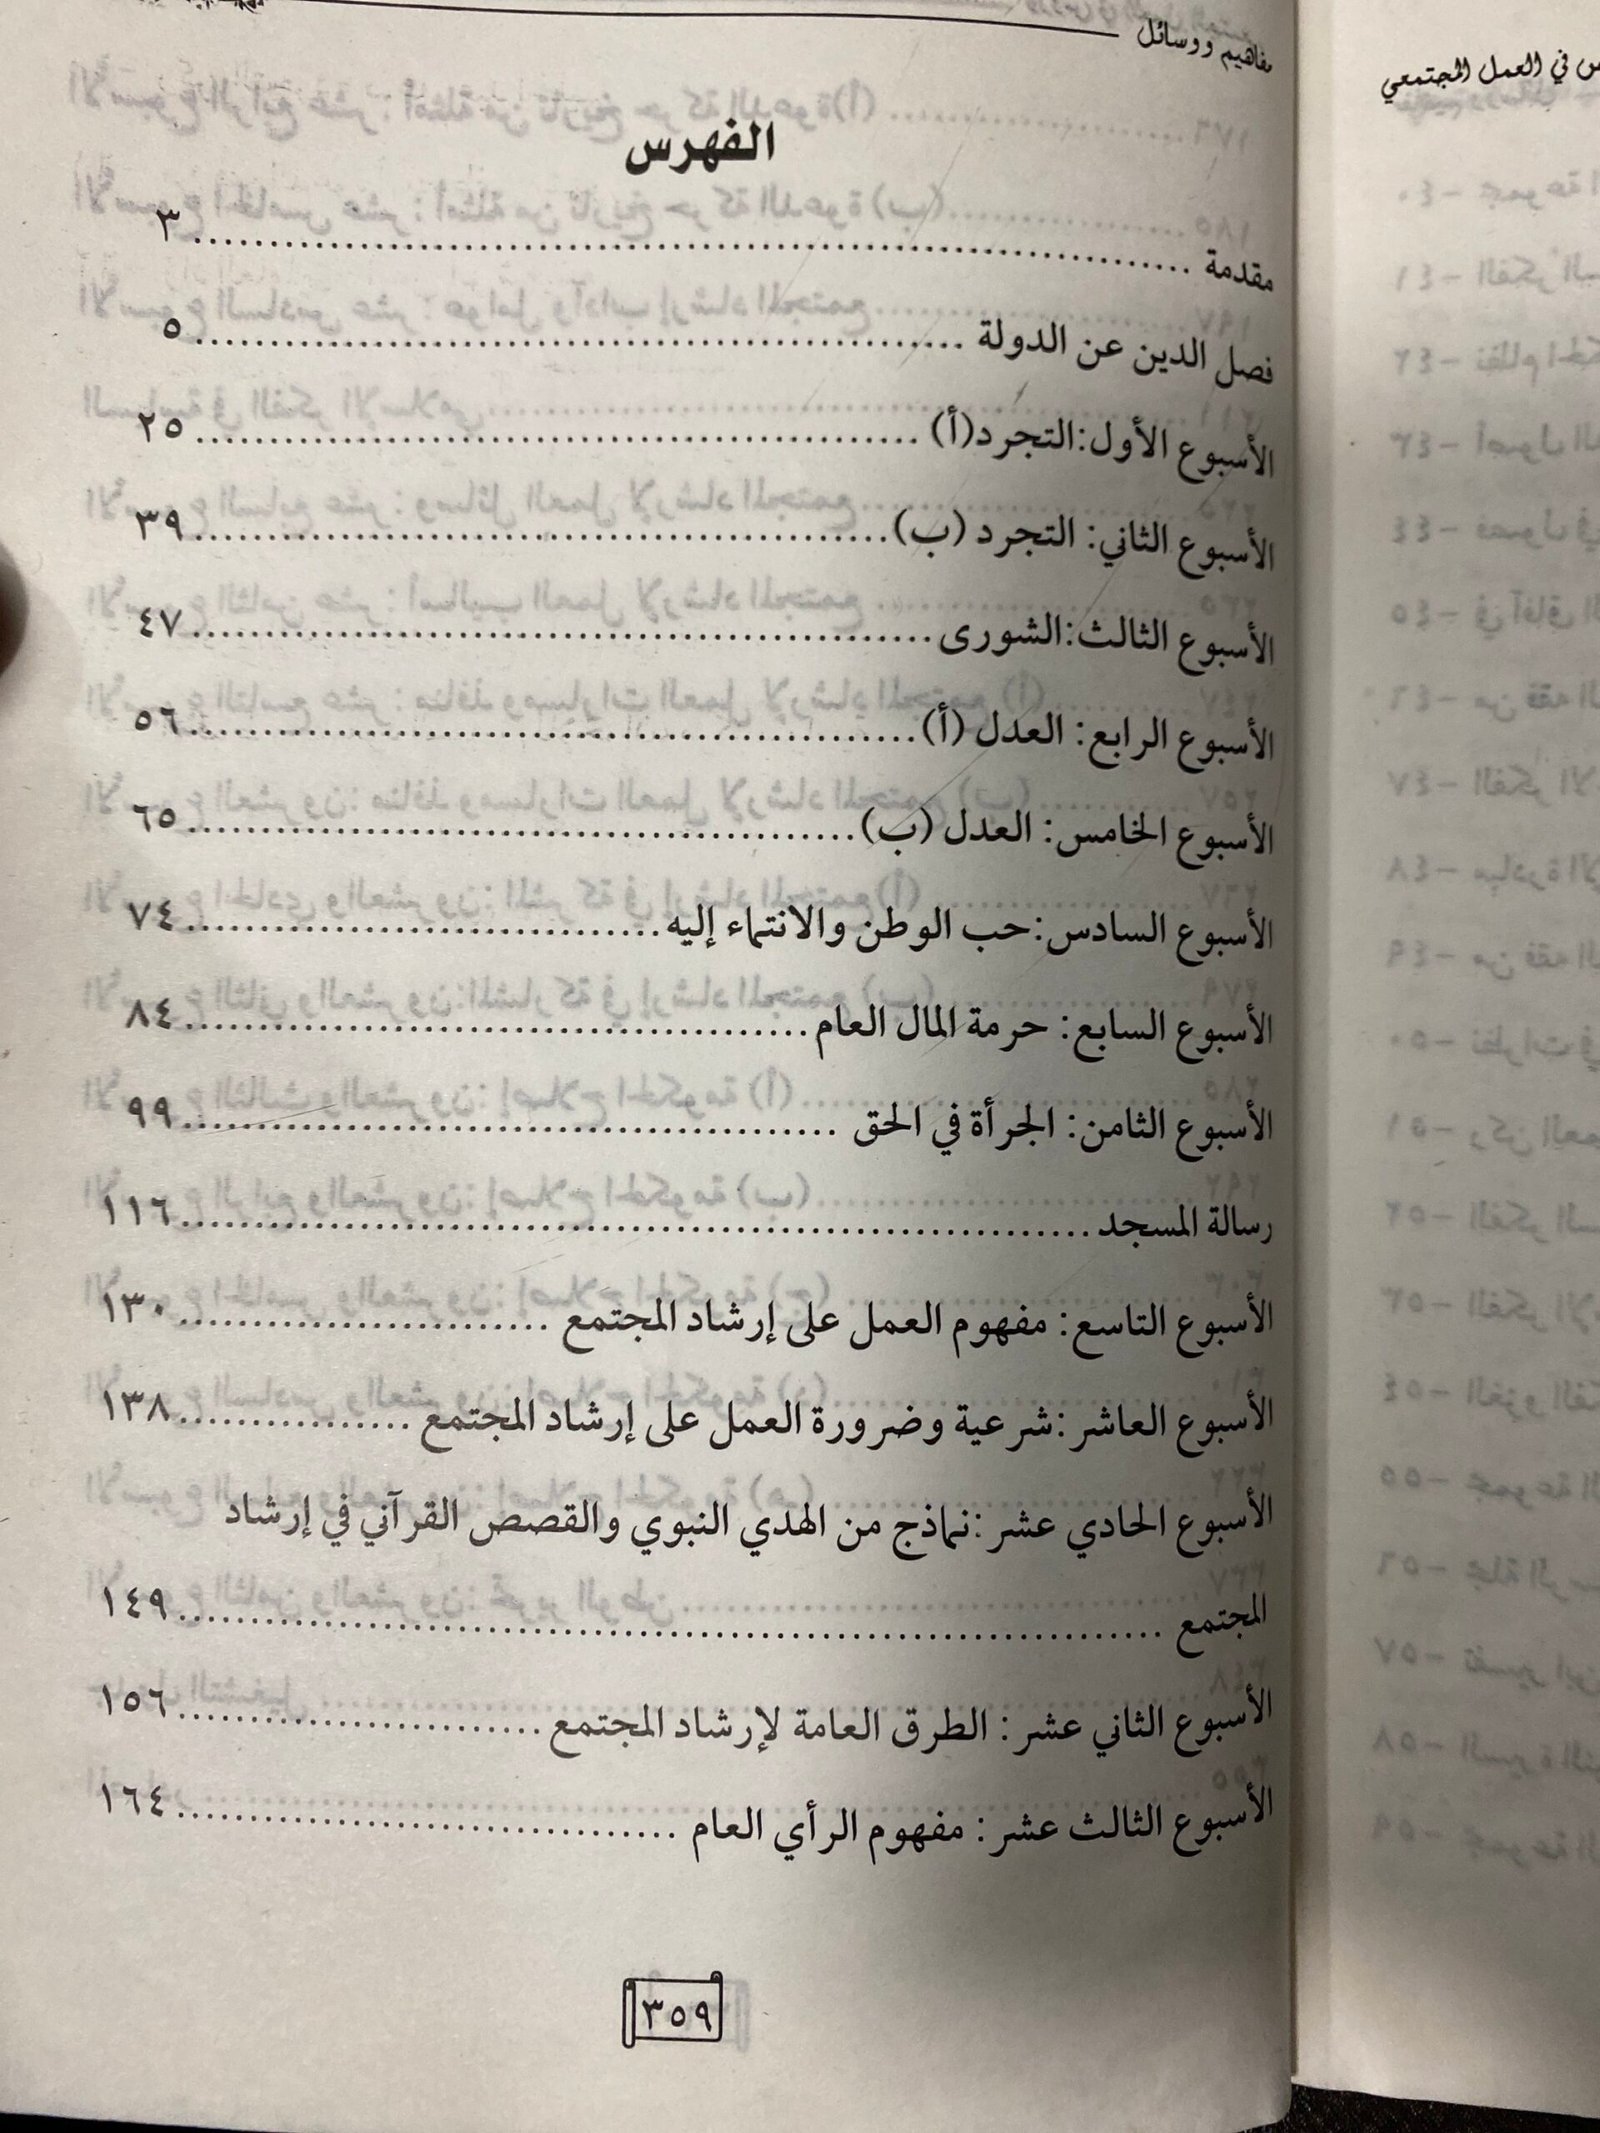 مفاهيم ووسائل
في العمل المجتمعي
الفهرس
مقدمة ................................ ٣
فصل الدين عن الدولة ................................ ٥
الأسبوع الأول:التجرد(أ) ................................ ٢٥
الأسبوع الثاني: التجرد (ب)................................ ٣٩
الأسبوع الثالث:الشورى................................ ٤٧
الأسبوع الرابع: العدل (أ)................................ ٥٦
الأسبوع الخامس: العدل (ب)................................ ٦٥
الأسبوع السادس:حب الوطن والانتماء إليه................................ ٧٤
الأسبوع السابع: حرمة المال العام................................ ٨٤
الأسبوع الثامن: الجرأة في الحق ................................ ٩٩
رسالة المسجد................................ ١١٦
الأسبوع التاسع: مفهوم العمل على إرشاد المجتمع ................................ ١٣٠
الأسبوع العاشر :شرعية وضرورة العمل على إرشاد المجتمع ................ ١٣٨
الأسبوع الحادي عشر :نماذج من الهدي النبوي والقصص القرآني في إرشاد
المجتمع ................................ ١٤٩
الأسبوع الثاني عشر : الطرق العامة لإرشاد المجتمع ........................ ١٥٦
الأسبوع الثالث عشر : مفهوم الرأي العام ................................ ١٦٤
٣٥٩